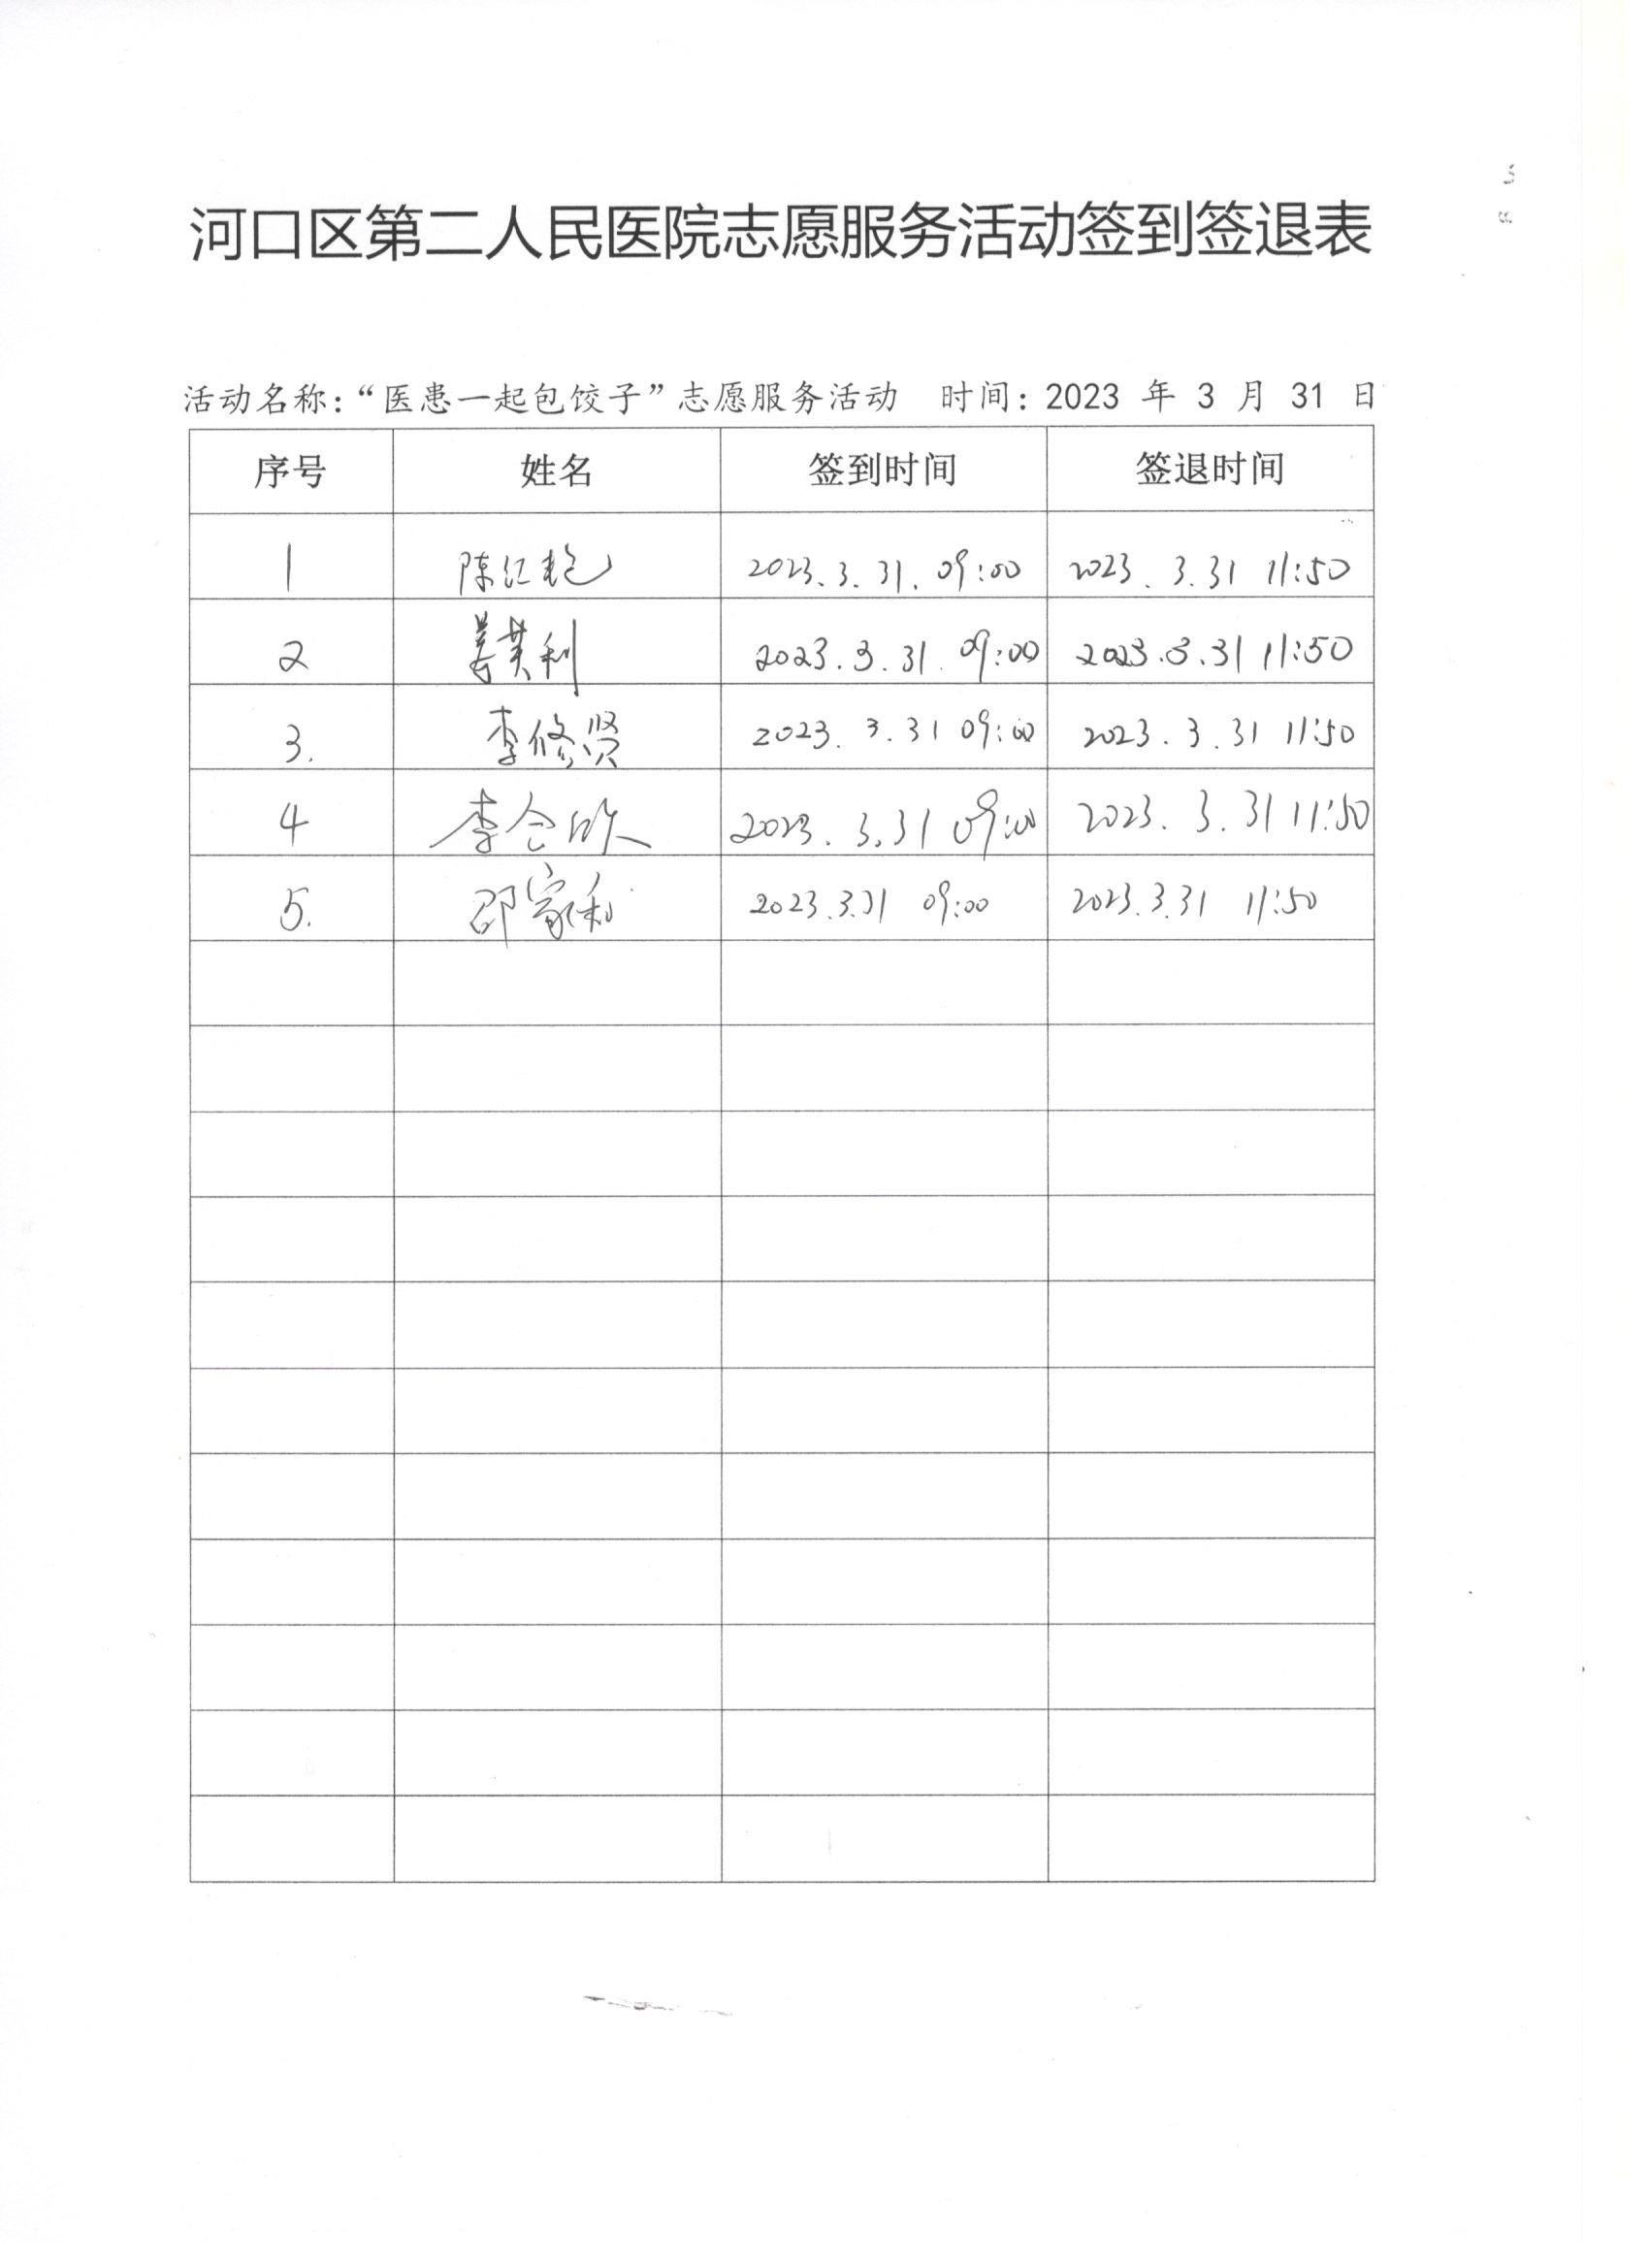 河口区第二人民医院志愿服务活动签到签退表
活动名称：“医患一起包饺子”志愿服务活动 时间：2023 年 3 月 31 日
序号 姓名 签到时间 签退时间
1 陈红艳 2023.3.31. 09:00 2023.3.31 11:50
2 姜英利 2023.3.31. 09:00 2023.3.31 11:50
3. 李修贤 2023.3.31 09:00 2023.3.31 11:50
4 李 2023.3.31 09:00 2023.3.31 11:50
5. 邵家和 2023.3.31 09:00 2023.3.31 11:50